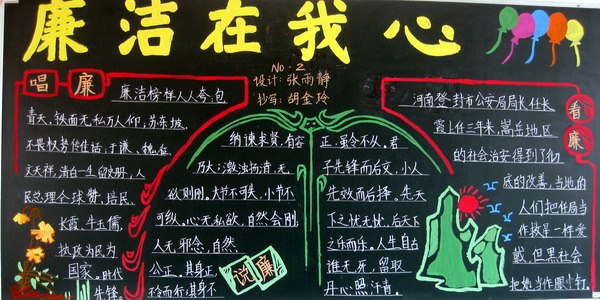 廉洁在我心
No.2
设计:张雨静
抄写:胡金玲
唱廉
廉洁榜样人人夸,包
青天,铁面无私万人仰;苏东坡,
不畏权势传佳话;于谦、魏征、
文天祥,清白一生留史册,人
民总理全球赞,焦民、
长霞、牛玉儒,
执政为民为
国家。时代
先锋。
纳谏求贤,有容
乃大;激浊扬清,无
欲则刚。大节不可失,小节不
可纵。心无私欲,自然会刚,
人无邪念,自然
公正。其身正,
不令而行;其身不
正,虽令不从。君
子先择而后交,小人
先交而后择。先天
下之忧而忧,后天下
之乐而乐。人生自古
谁无死,留取
丹心照汗青。
说廉
看廉
河南登封市公安局局长任长
霞上任三年来,嵩岳地区
的社会治安得到了彻
底的改善,当地的
人们把任局当
作救星一样爱
戴,但黑社会
把她当作眼中钉。